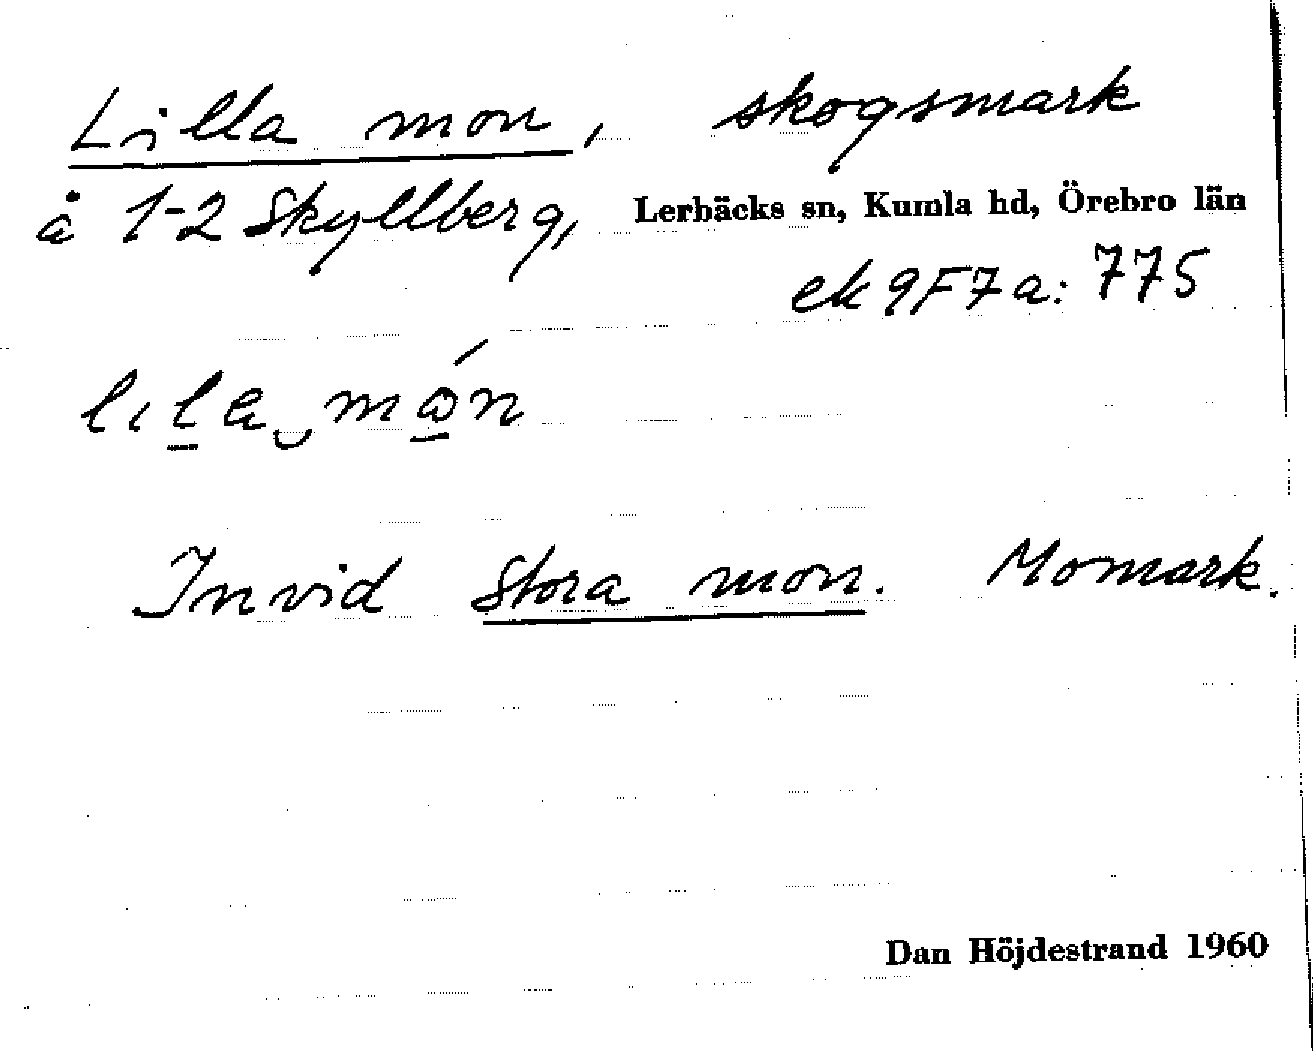 Lilla mon, skogsmark
å 1-2 Skyllberg, Lerbäcks sn, Kumla hd, Örebro län
ek 9F7a: 775
Invid Stora mon. Momark.
Dan Höjdestrand 1960